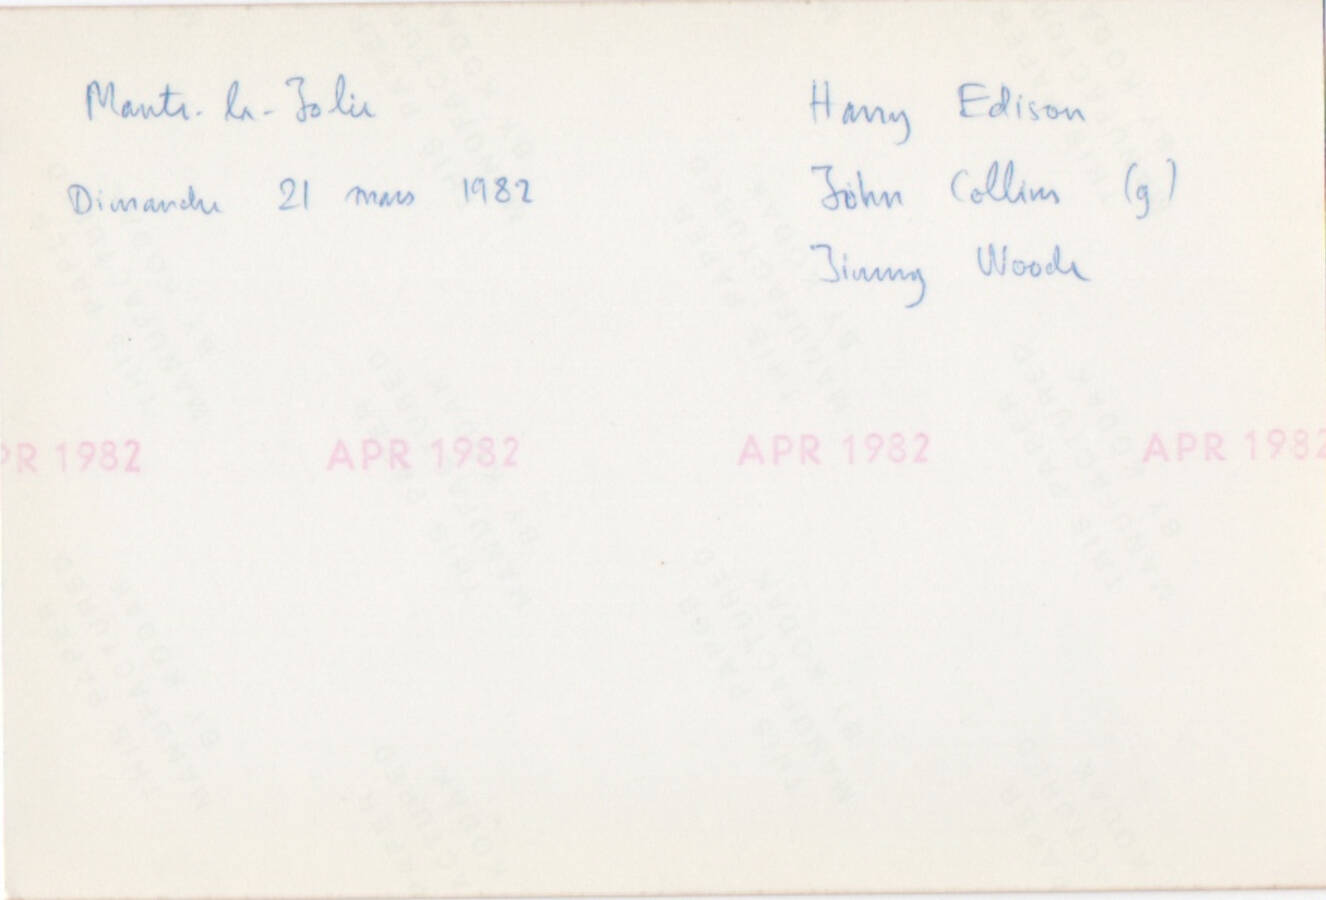 Mantes-la-Jolie
Dimanche 21 mars 1982
Harry Edison
John Collins (g)
Jimmy Woode
PR 1982 APR 1982 APR 1982 APR 1982
THIS PAPER
MANUFACTURED
BY KODAK